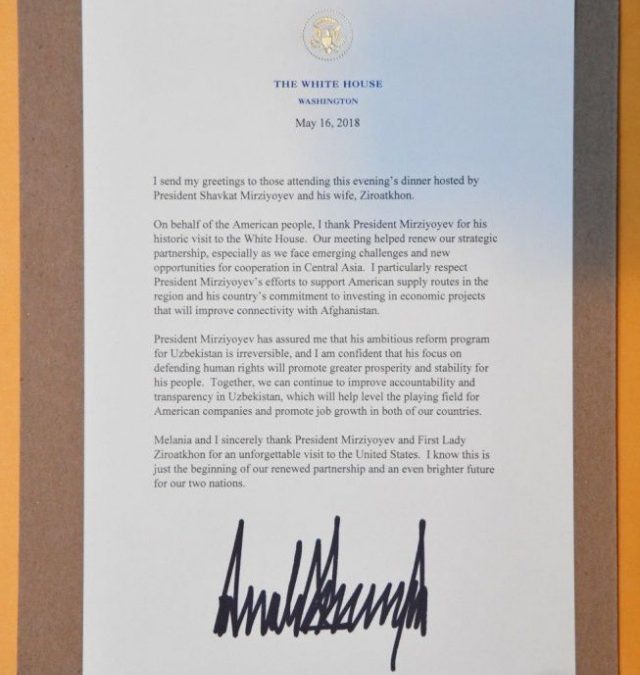 THE WHITE HOUSE
WASHINGTON
May 16, 2018
I send my greetings to those attending this evening's dinner hosted by
President Shavkat Mirziyoyev and his wife, Ziroatkhon.
On behalf of the American people, I thank President Mirziyoyev for his
historic visit to the White House.  Our meeting helped renew our strategic
partnership, especially as we face emerging challenges and new
opportunities for cooperation in Central Asia.  I particularly respect
President Mirziyoyev's efforts to support American supply routes in the
region and his country's commitment to investing in economic projects
that will improve connectivity with Afghanistan.
President Mirziyoyev has assured me that his ambitious reform program
for Uzbekistan is irreversible, and I am confident that his focus on
defending human rights will promote greater prosperity and stability for
his people.  Together, we can continue to improve accountability and
transparency in Uzbekistan, which will help level the playing field for
American companies and promote job growth in both of our countries.
Melania and I sincerely thank President Mirziyoyev and First Lady
Ziroatkhon for an unforgettable visit to the United States.  I know this is
just the beginning of our renewed partnership and an even brighter future
for our two nations.